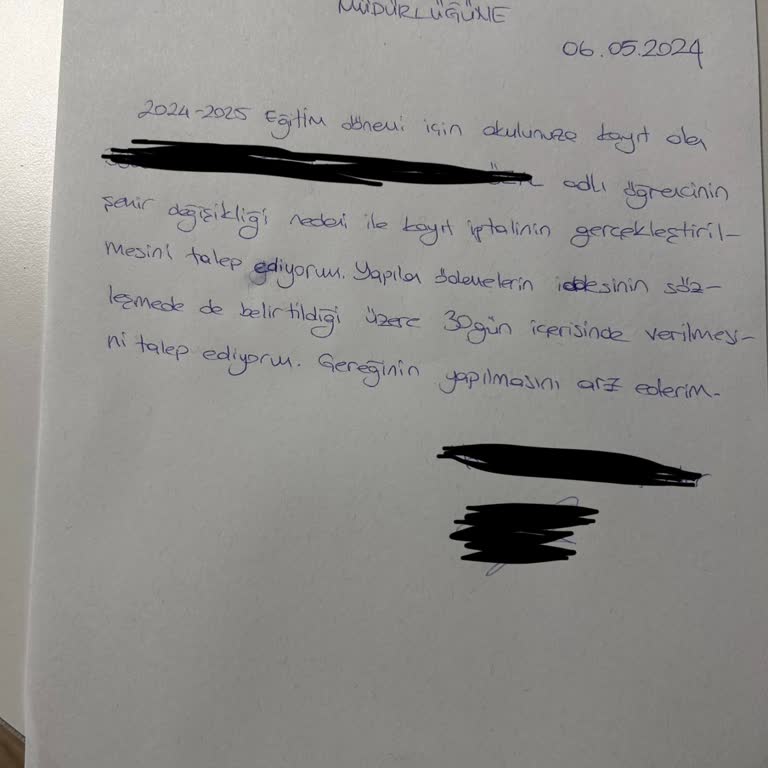 MÜDÜRLÜĞÜNE
06.05.2024
2024-2025 Eğitim dönemi için okulunuza kayıt olan
adlı öğrencinin
şehir değişikliği nedeni ile kayıt iptalinin gerçekleştiril-
mesini talep ediyorum. Yapılan ödemelerin iadesinin söz-
leşmede de belirtildiği üzere 30 gün içerisinde verilmesi-
ni talep ediyorum. Gereğinin yapılmasını arz ederim.